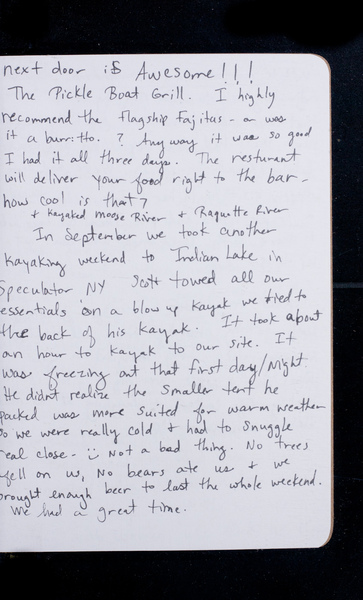 next door is Awesome!!!
The Pickle Boat Grill. I highly
recommend the flagship fajitas - or was
it a burritto. ? Any way it was so good
I had it all three days. The resturant
will deliver your food right to the bar -
how cool is that?
+ Kayaked Moose River + Raquette River
In September we took another
Kayaking weekend to Indian Lake in
Speculator NY Scott towed all our
essentials on a blow up kayak we tied to
the back of his kayak. It took about
an hour to kayak to our site. It
was freezing out that first day/Night
He didnt realize the smaller tent he
packed was more suited for warm weather
so we were really cold + had to snuggle
real close - Not a bad thing. No trees
fell on us, No bears ate us + we
brought enough beer to last the whole weekend.
We had a great time.